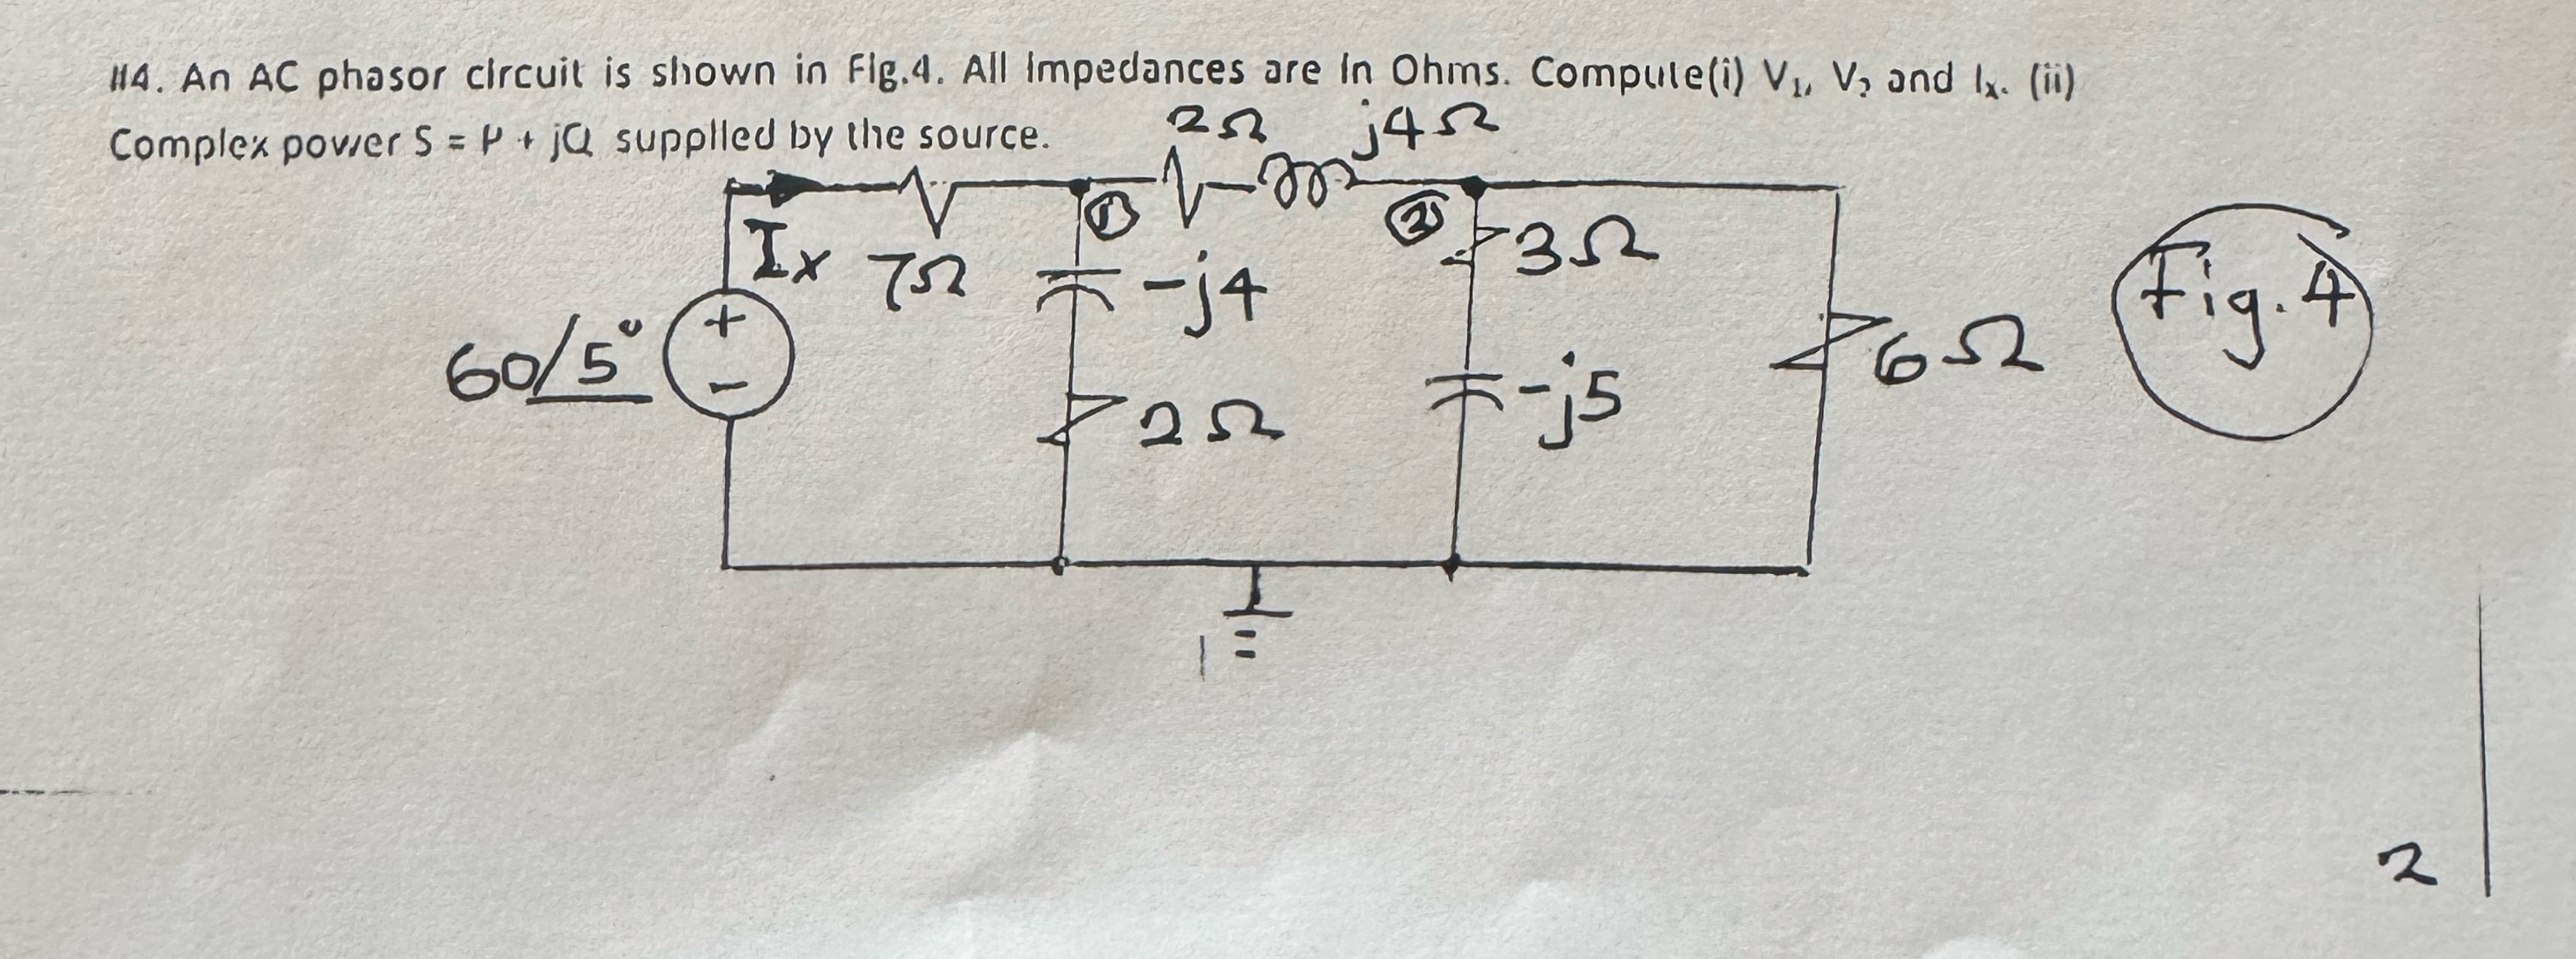 #4. An AC phasor circuit is shown in Fig.4. All Impedances are in Ohms. Compute(i) V₁, V₂ and Iₓ. (ii)
Complex power S = P + jQ supplied by the source.
2Ω j4Ω
Ix 7Ω
1
2
-j4
3Ω
60/5°
+
-
2Ω
-j5
6Ω
Fig. 4
2